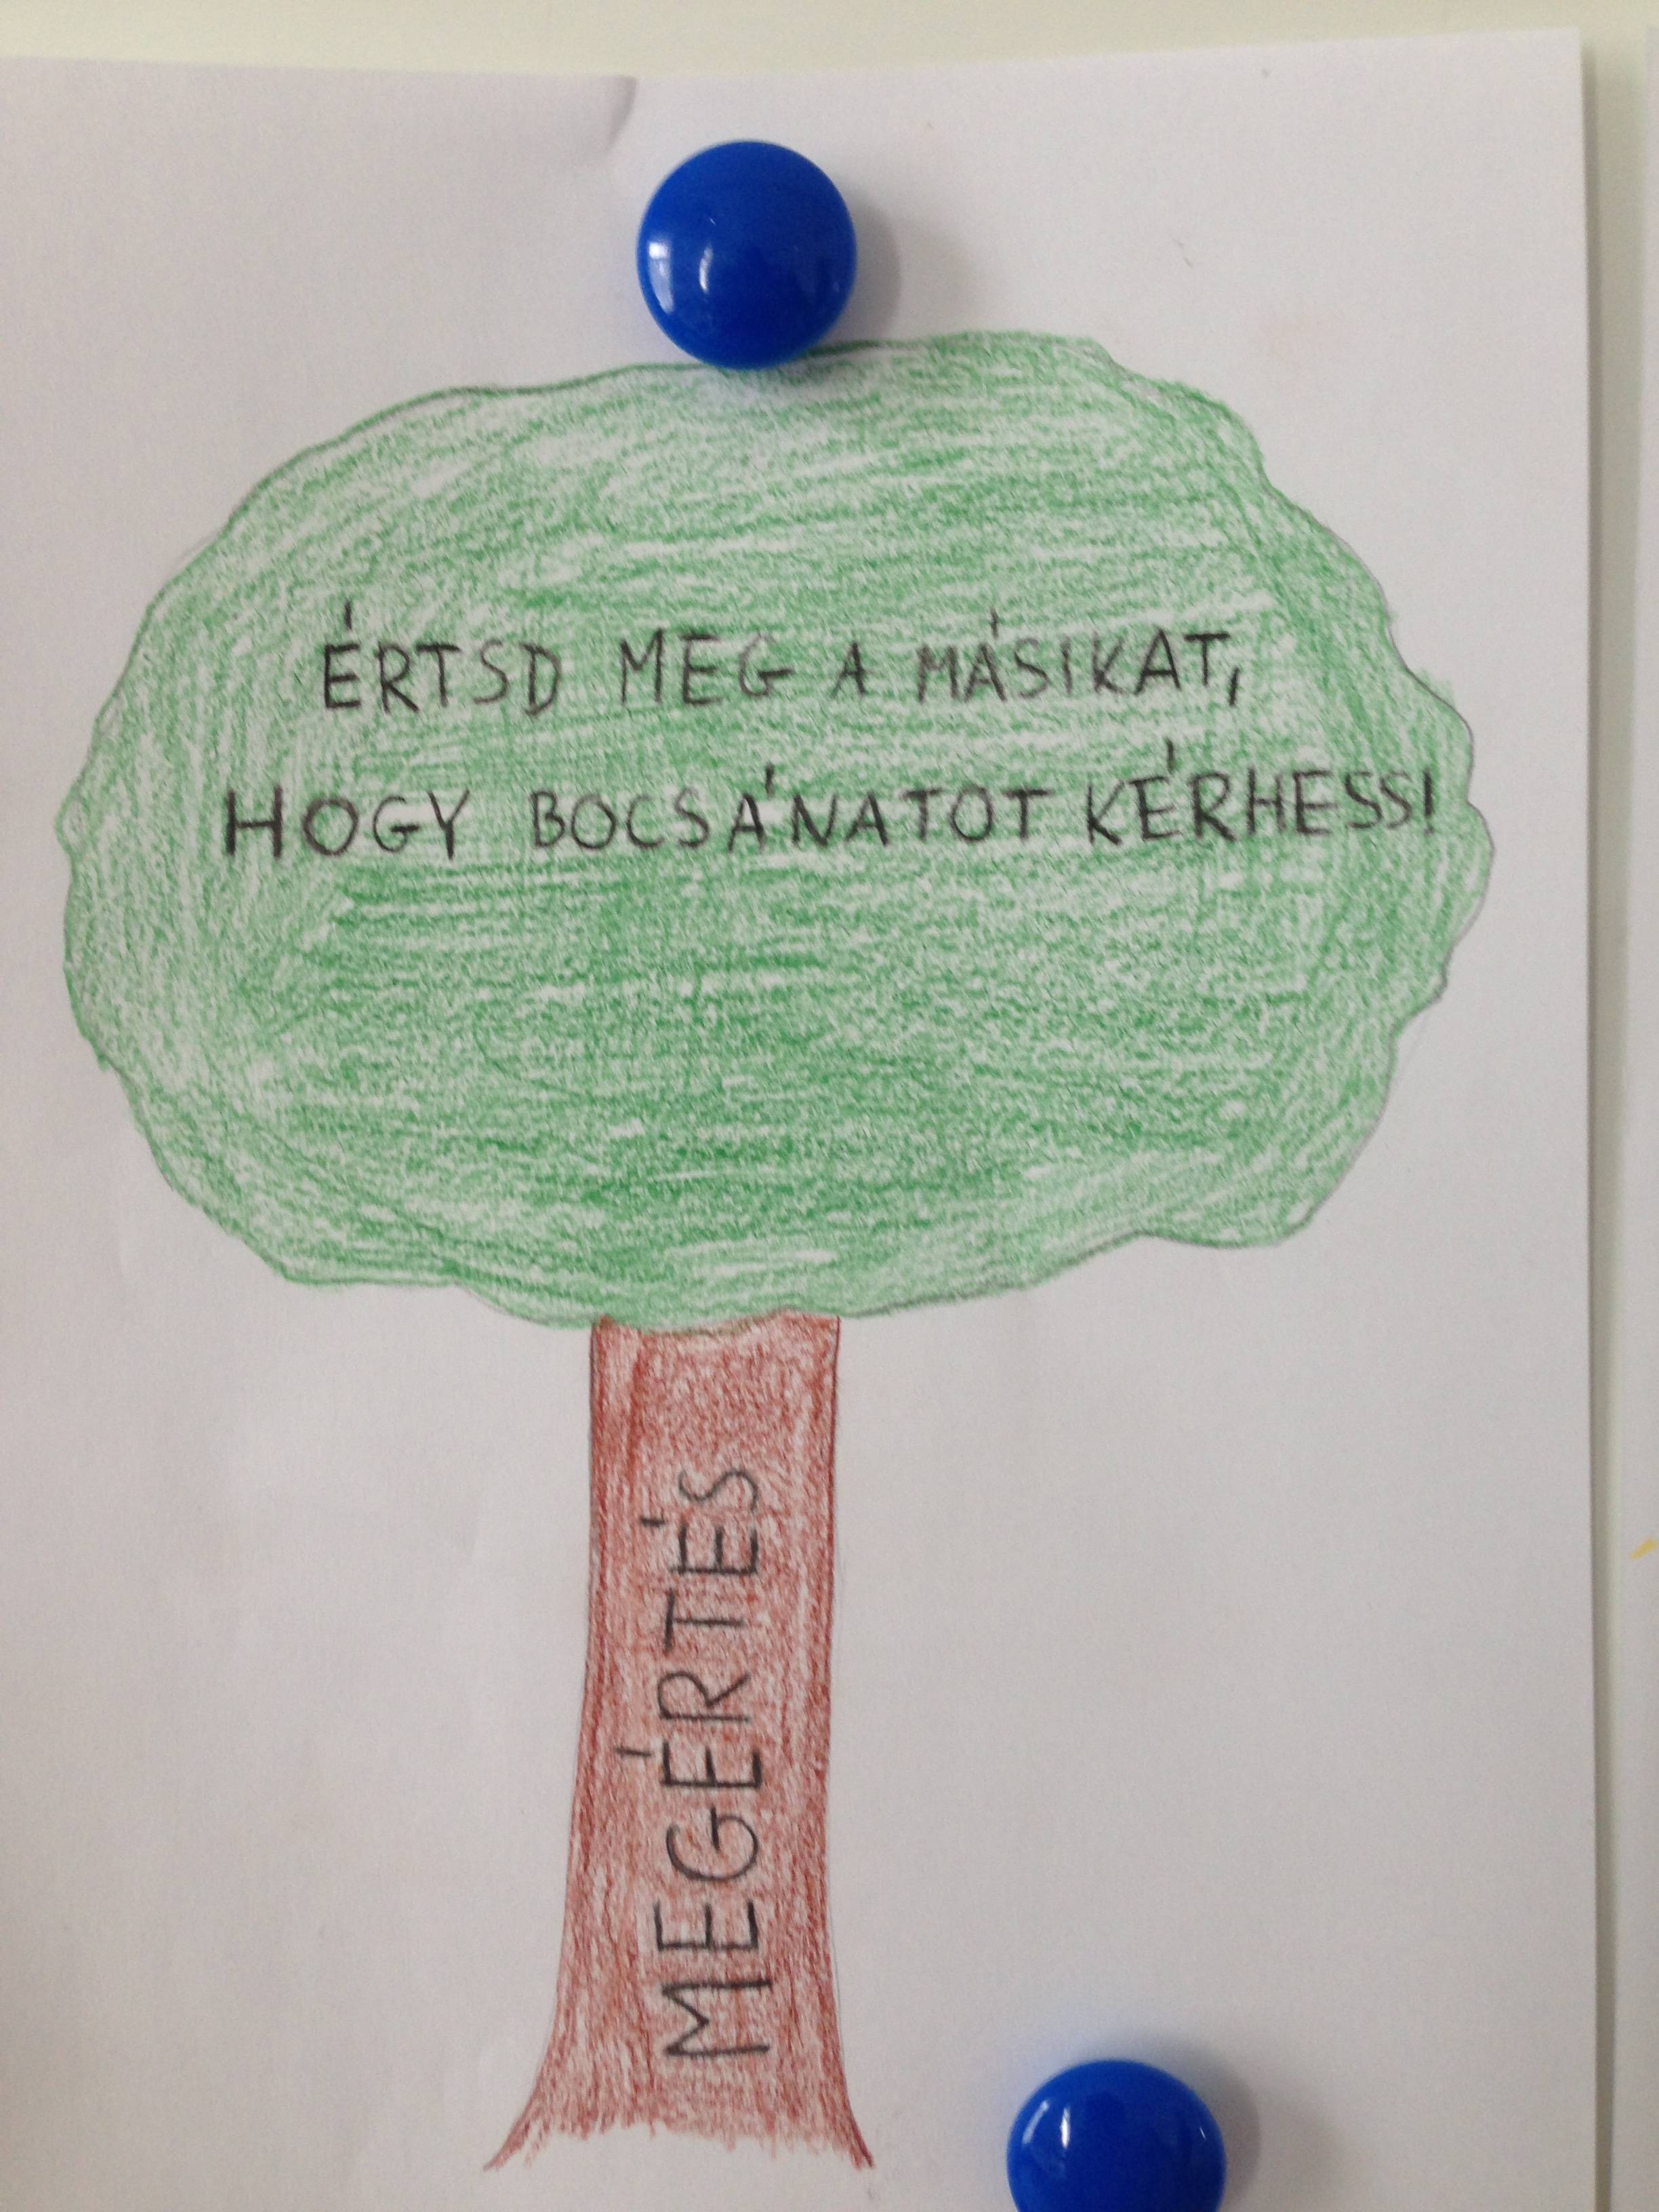 ÉRTSD MEG A MÁSIKAT,
HOGY BOCSÁNATOT KÉRHESS!
MEGÉRTÉS